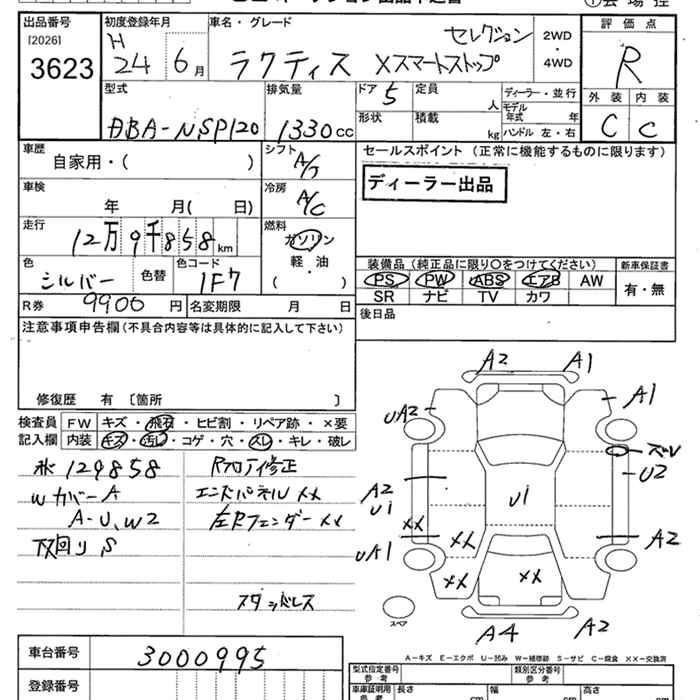 出品番号
[2026]
3623
初度登録年月
H
24 6月
車名・グレード
セレクション
ラクティス Xスマートストップ
2WD
・
4WD
評価点
R
外装 内装
C C
型式
DBA-NSP120
排気量
1330cc
ドア 5
定員
人
形状
積載
kg
ディーラー・並行
モデル
年式 年
ハンドル 左・右
車歴
自家用・( )
シフト
A/T
車検
年 月( 日)
冷房
A/C
走行
12万9千858km
燃料
ガソリン
軽・油
( )
色
シルバー
色替
色コード
1F7
R券 9900円
名変期限 月 日
セールスポイント (正常に機能するものに限ります)
ディーラー出品
装備品 (純正品に限り○をつけてください)
新車保証書
PS PW ABS エアB AW
SR ナビ TV カワ
有・無
後日品
注意事項申告欄(不具合内容等は具体的に記入して下さい)
修復歴 有 〔箇所 〕
検査員
記入欄
FW キズ・飛石・ヒビ割・リペア跡・×要
内装 キズ・汚レ・コゲ・穴・スレ・キレ・破レ
129858
Wカバー A
A-U、W2
下回りS
Rフロアイ修正
エンドパネルXX
左Rフェンダー XX
スタッドレス
A2 A1
A1
UA2
ズレ
U2
A2
U1
XX
U1
UA1
XX
A2
XX
XX
A4 A2
スペア
A-キズ E-エクボ U-凹み W-補修跡 S-サビ C-腐食 XX-交換済
車台番号
3000995
登録番号
型式指定番号
参考
類別区分番号
参考
車庫証明用
参考
長さ
cm
幅
cm
高さ
cm